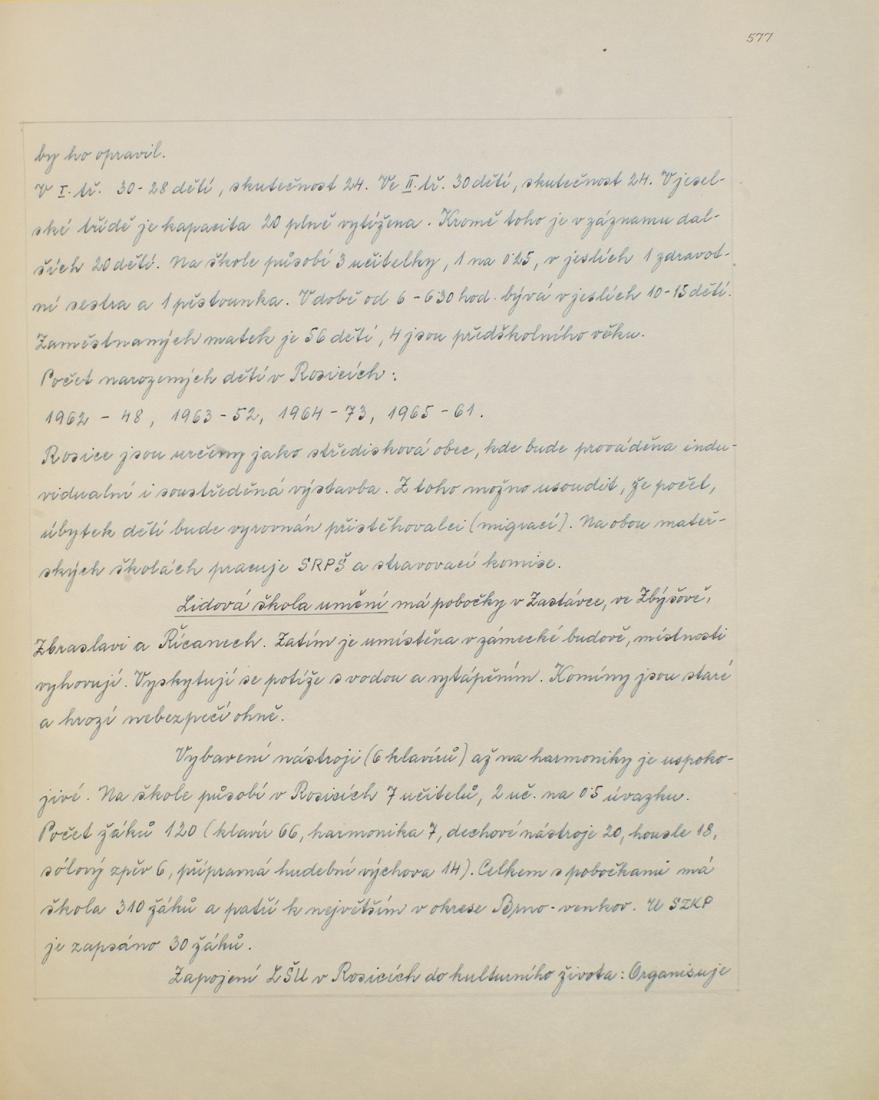 577
by ho opravil.
V I. tř. 30-28 dětí, skutečnost 24. Ve II. tř. 30 dětí, skutečnost 24. V jesel-
ské třídě je kapacita 20 plně vytížena. Kromě toho je v záznamu dal-
ších 20 dětí. Na škole působí 3 učitelky, 1 na 0'25, v jeslích 1 zdravot-
ní sestra a 1 pěstounka. V době od 6-630 hod. bývá v jeslích 10-15 dětí.
Zaměstnaných matek je 56 dětí, 4 jsou předškolního věku.
Počet narozených dětí v Rosicích:
1962 - 48, 1963 - 52, 1964 - 73, 1965 - 61.
Rosice jsou určeny jako středisková obec, kde bude prováděna indu-
vidualní i soustředěná výstavba. Z toho možno usoudit, že počet,
úbytek dětí bude vyrovnán přistěhovalci (migrací). Na obou mateř-
ských školách pracuje SRPŠ a stravovací komise.
Lidová škola umění má pobočky v Zastávce, ve Zbýšově,
Zbraslavi a Říčanech. Zatím je umístěna v zámecké budově, místnosti
vyhovují. Vyskytují se potíže s vodou a vytápěním. Komíny jsou staré
a hrozí nebezpečí ohně.
Vybavení nástroji (6 klavírů) až na harmoniky je uspoko-
jivé. Na škole působí v Rosicích 7 učitelů, 2 uč. na 0'5 úvazku.
Počet žáků 120 (klavír 66, harmonika 7, dechové nástroje 20, housle 18,
sólový zpěv 6, přípravná hudební výchova 14). Celkem s pobočkami má
škola 310 žáků a patří k největším v okrese Brno-venkov. Ve SZKP
je zapsáno 30 žáků.
Zapojení LŠU v Rosicích do kulturního života: Organisuje